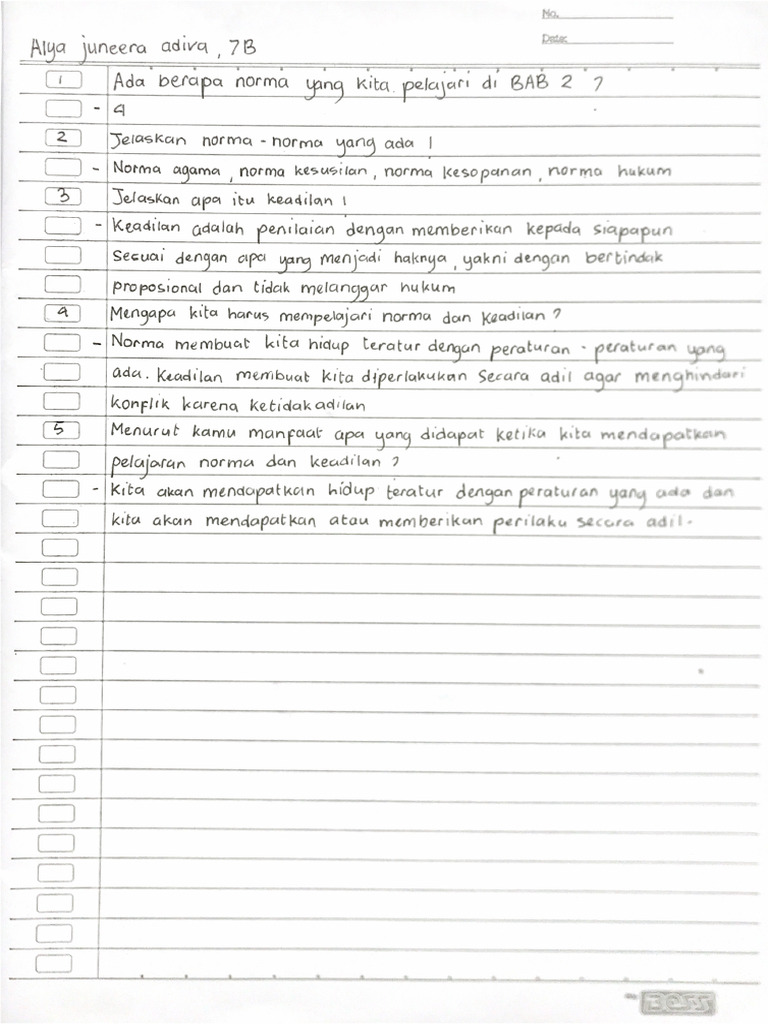 No.
Date:
Alya juneera adiva, 7B
1 Ada berapa norma yang kita pelajari di BAB 2 ?
- 4
2 Jelaskan norma - norma yang ada !
- Norma agama, norma kesusilan, norma kesopanan, norma hukum
3 Jelaskan apa itu keadilan !
- Keadilan adalah penilaian dengan memberikan kepada siapapun
Sesuai dengan apa yang menjadi haknya, yakni dengan bertindak
proposional dan tidak melanggar hukum
4 Mengapa kita harus mempelajari norma dan keadilan ?
- Norma membuat kita hidup teratur dengan peraturan - peraturan yang
ada. Keadilan membuat kita diperlakukan secara adil agar menghindari
konflik karena ketidakadilan
5 Menurut kamu manfaat apa yang didapat ketika kita mendapatkan
pelajaran norma dan keadilan ?
- Kita akan mendapatkan hidup teratur dengan peraturan yang ada dan
kita akan mendapatkan atau memberikan perilaku secara adil.